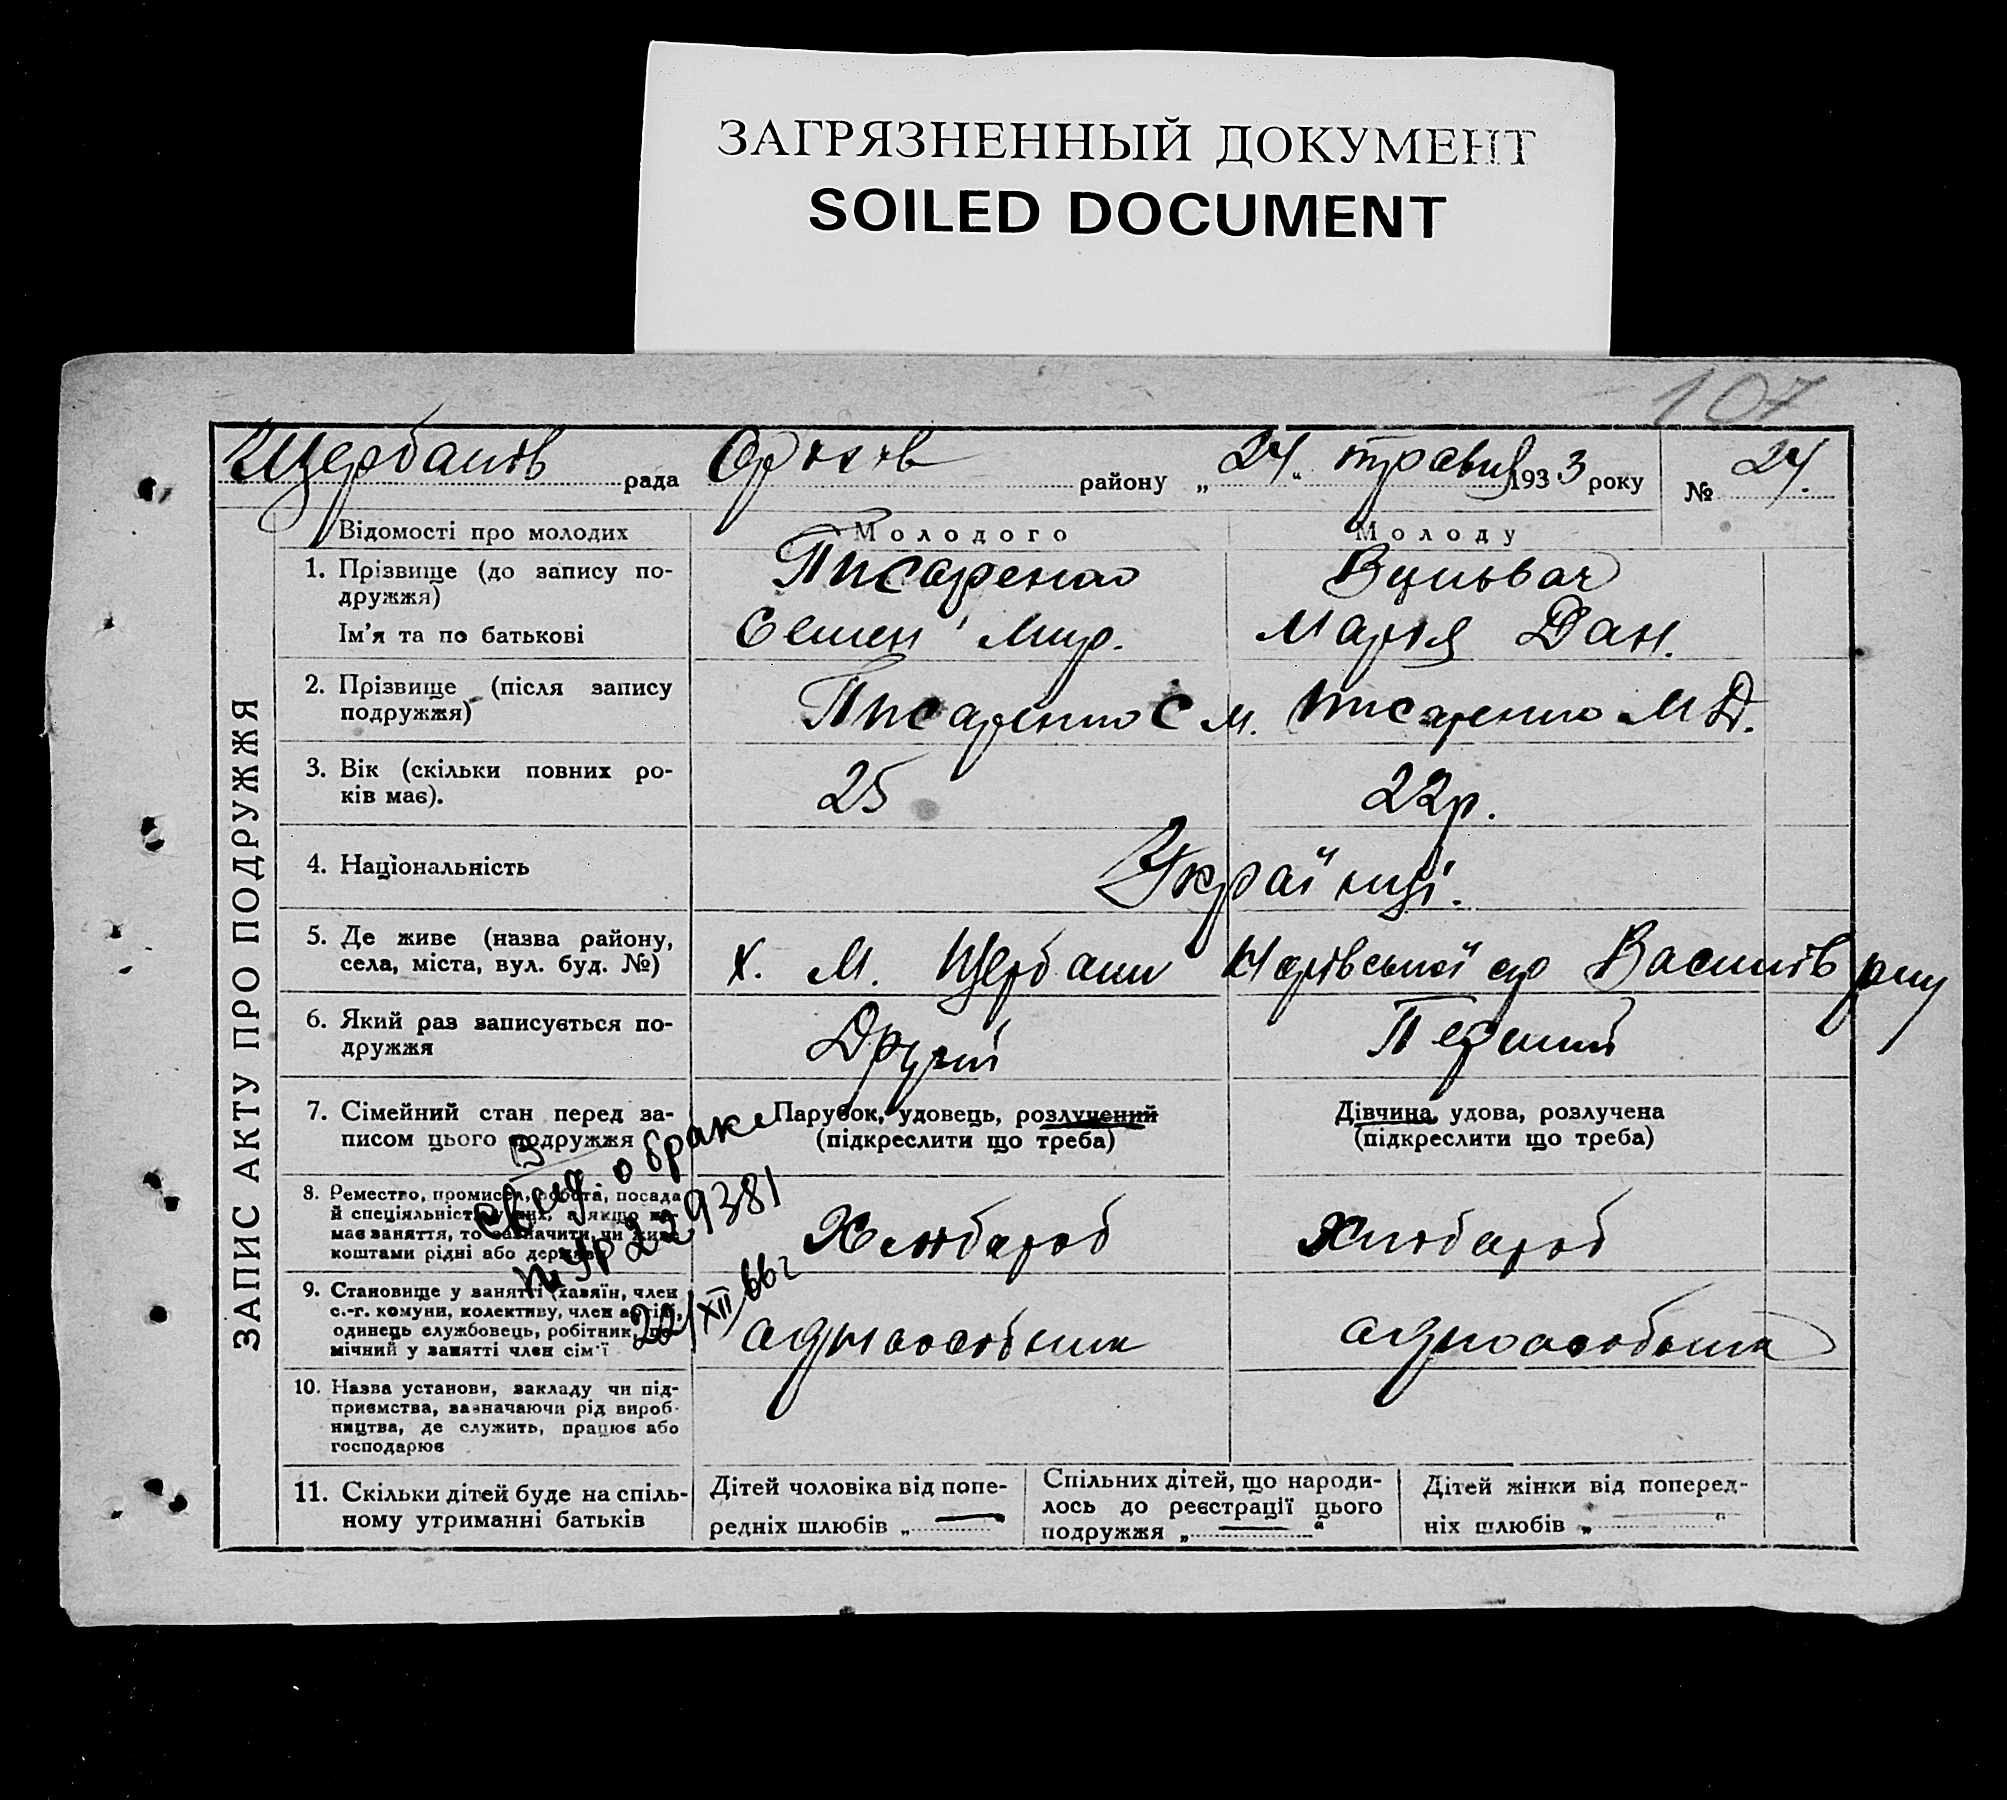 ЗАГРЯЗНЕННЫЙ ДОКУМЕНТ
SOILED DOCUMENT
107
Щербаків рада Оріхів району „24“ травня 1933 року № 24.
ЗАПИС АКТУ ПРО ПОДРУЖЖЯ
Відомості про молодих Молодого Молоду
1. Прізвище (до запису по-
дружжя)
Писаренко
Ім'я та по батькові
Семен Мир. Марія Дан.
2. Прізвище (після запису
подружжя)
Писаренко С М. Писаренко М Д.
3. Вік (скільки повних ро-
ків має).
25 22р.
4. Національність
Українці.
5. Де живе (назва району,
села, міста, вул. буд. №)
х. М. Щербаки Василів р-ну
6. Який раз записується по-
дружжя
Другий Перший
7. Сімейний стан перед за-
писом цього подружжя
Парубок, удовець, розлучений
(підкреслити що треба)
Дівчина, удова, розлучена
(підкреслити що треба)
В
свид о браке
229381
20/XII 66г
8. Ремество, промисел, робота, посада
й спеціяльність у них, а якщо не-
має заняття, то зазначити, чи живе
коштами рідні або держави
Хлібороб Хлібороб
9. Становище у занятті (хазяїн, член
с.-г. комуни, колективу, член артілі,
одинець службовець, робітник, по-
мічний у занятті член сім'ї
одноосібник одноосібник
10. Назва установи, закладу чи під-
приємства, зазначаючи рід вироб-
ництва, де служить, працює або
господарює
11. Скільки дітей буде на спіль-
ному утриманні батьків
Дітей чоловіка від попе-
редніх шлюбів „—“
Спільних дітей, що народи-
лось до реєстрації цього
подружжя „—“
Дітей жінки від поперед-
ніх шлюбів „—“